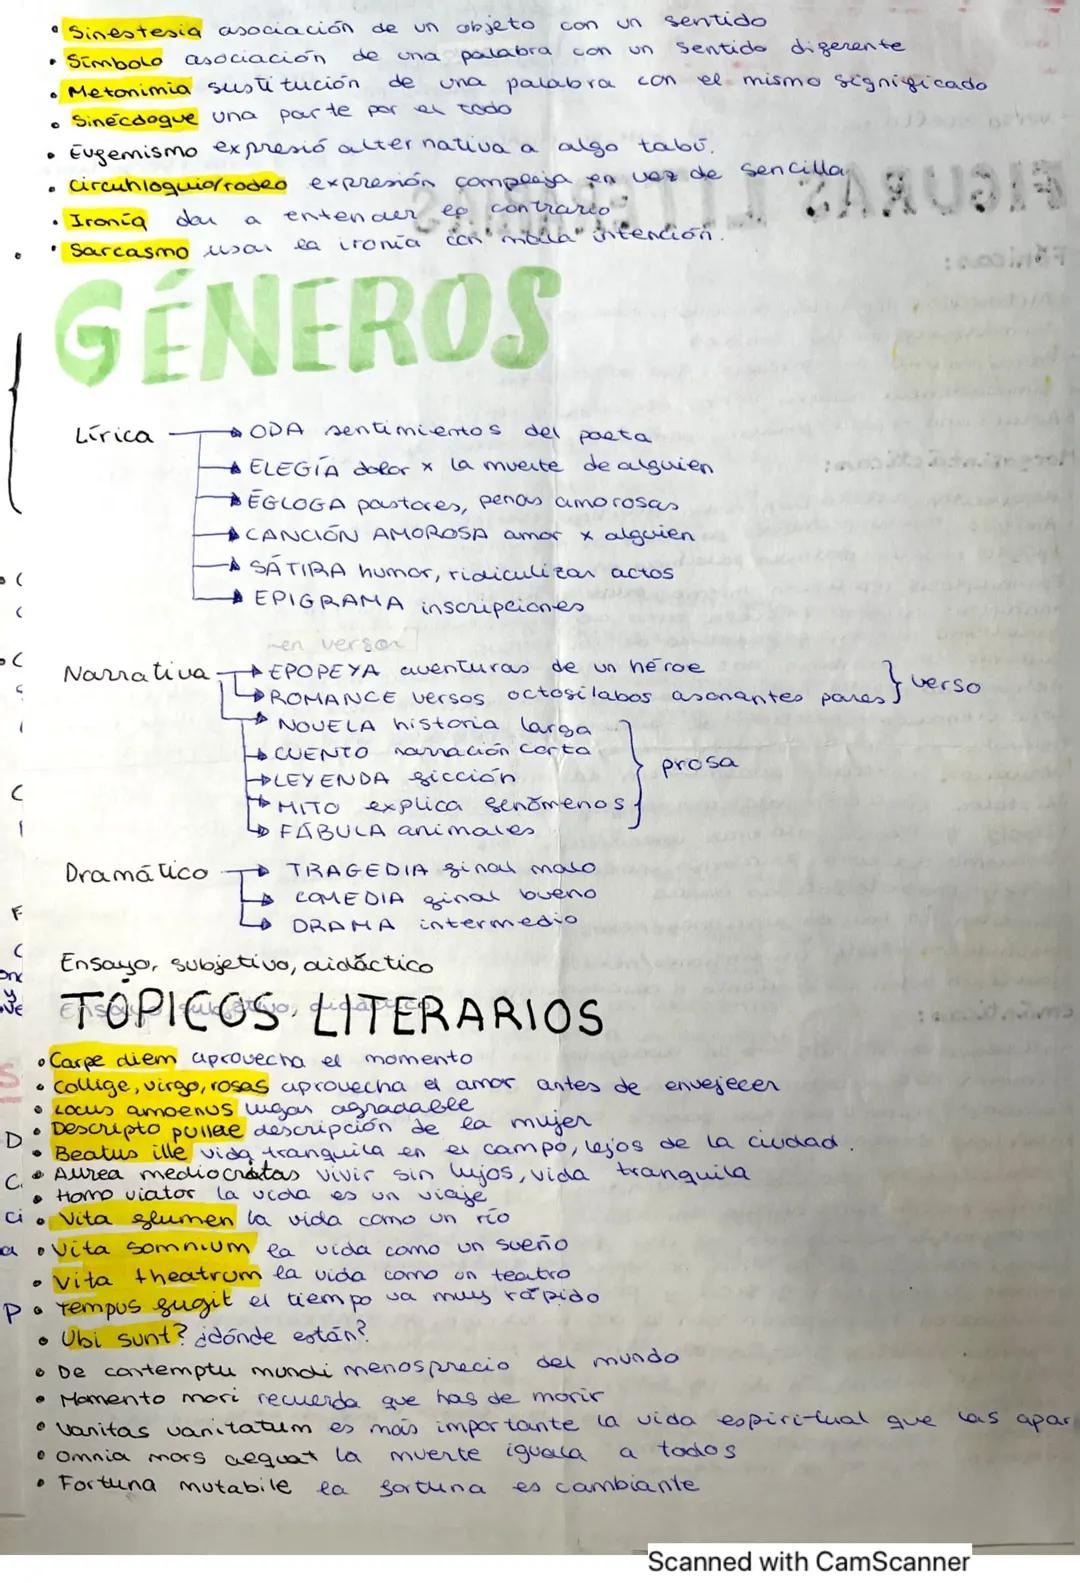 • Sinestesia asociación de un objeto con un sentido
• Símbolo asociación de una palabra con un sentido diferente
• Metonimia sustitución de una palabra con el mismo significado
• Sinécdoque una parte por el todo
• Eufemismo expresió alternativa a algo tabú.
• Circunloquio/rodeo expresión compleja en vez de sencilla
• Ironía dar a entender lo contrario
• Sarcasmo usar la ironía con mala intención.
GÉNEROS
Lírica → ODA sentimientos del poeta
→ ELEGÍA dolor x la muerte de alguien
→ ÉGLOGA pastores, penas amorosas
→ CANCIÓN AMOROSA amor x alguien
→ SÁTIRA humor, ridiculizar actos
→ EPIGRAMA inscripciones
en verso
Narrativa → EPOPEYA aventuras de un héroe
→ ROMANCE versos octosílabos asonantes pares } verso
→ NOVELA historia larga
→ CUENTO narración corta
→ LEYENDA ficción } prosa
→ MITO explica fenómenos
→ FÁBULA animales
Dramático → TRAGEDIA final malo
→ COMEDIA final bueno
→ DRAMA intermedio
Ensayo, subjetivo, didáctico
TÓPICOS LITERARIOS
• Carpe diem aprovecha el momento
• Collige, virgo, rosas aprovecha el amor antes de envejecer
• Locus amoenus lugar agradable
• Descripto pullae descripción de la mujer
• Beatus ille vida tranquila en el campo, lejos de la ciudad.
• Aurea mediocritas vivir sin lujos, vida tranquila
• Homo viator la vida es un viaje
• Vita flumen la vida como un río
• Vita somnium la vida como un sueño
• Vita theatrum la vida como un teatro
• Tempus fugit el tiempo va muy rápido
• Ubi sunt? ¿dónde están?
• De contemptu mundi menosprecio del mundo
• Momento mori recuerda que has de morir
• Vanitas vanitatum es más importante la vida espiritual que las apar
• Omnia mors aequat la muerte iguala a todos
• Fortuna mutabile la fortuna es cambiante
Scanned with CamScanner